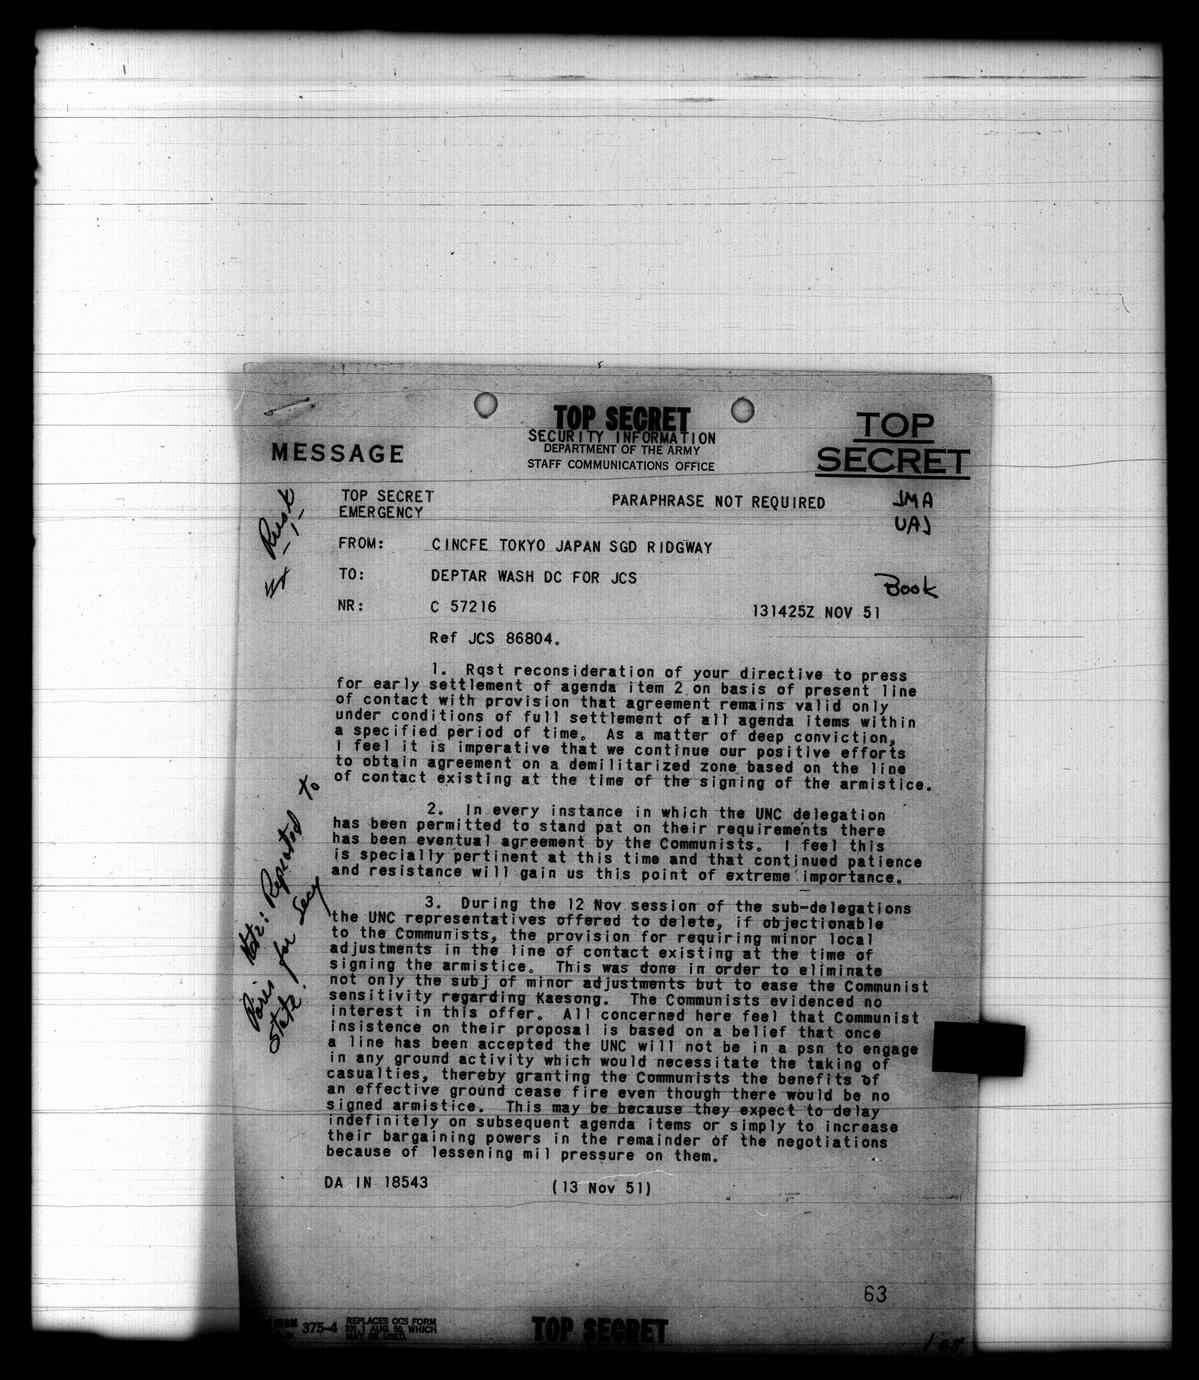 TOP SECRET
SECURITY INFORMATION
DEPARTMENT OF THE ARMY
STAFF COMMUNICATIONS OFFICE
MESSAGE
TOP
SECRET
TOP SECRET
EMERGENCY
PARAPHRASE NOT REQUIRED
JMA
UAJ
Rusk
-1-
FROM: CINCFE TOKYO JAPAN SGD RIDGWAY
TO: DEPTAR WASH DC FOR JCS
Book
NR: C 57216 131425Z NOV 51
Ref JCS 86804.
1. Rqst reconsideration of your directive to press
for early settlement of agenda item 2 on basis of present line
of contact with provision that agreement remains valid only
under conditions of full settlement of all agenda items within
a specified period of time. As a matter of deep conviction,
I feel it is imperative that we continue our positive efforts
to obtain agreement on a demilitarized zone based on the line
of contact existing at the time of the signing of the armistice.
2. In every instance in which the UNC delegation
has been permitted to stand pat on their requirements there
has been eventual agreement by the Communists. I feel this
is specially pertinent at this time and that continued patience
and resistance will gain us this point of extreme importance.
3. During the 12 Nov session of the sub-delegations
the UNC representatives offered to delete, if objectionable
to the Communists, the provision for requiring minor local
adjustments in the line of contact existing at the time of
signing the armistice. This was done in order to eliminate
not only the subj of minor adjustments but to ease the Communist
sensitivity regarding Kaesong. The Communists evidenced no
interest in this offer. All concerned here feel that Communist
insistence on their proposal is based on a belief that once
a line has been accepted the UNC will not be in a psn to engage
in any ground activity which would necessitate the taking of
casualties, thereby granting the Communists the benefits of
an effective ground cease fire even though there would be no
signed armistice. This may be because they expect to delay
indefinitely on subsequent agenda items or simply to increase
their bargaining powers in the remainder of the negotiations
because of lessening mil pressure on them.
Note: Repeated to
Paris for Secy
State!
DA IN 18543 (13 Nov 51)
63
FORM 375-4 REPLACES OCS FORM
331, 1 AUG. 50, WHICH
MAY BE USED.
TOP SECRET